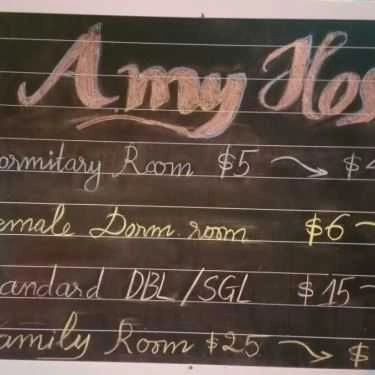 Amy Hos
ormitary Room $5 → $4
emale Dorm. room $6 →
andard DBL/SGL $15 →
amily Room $25 → $